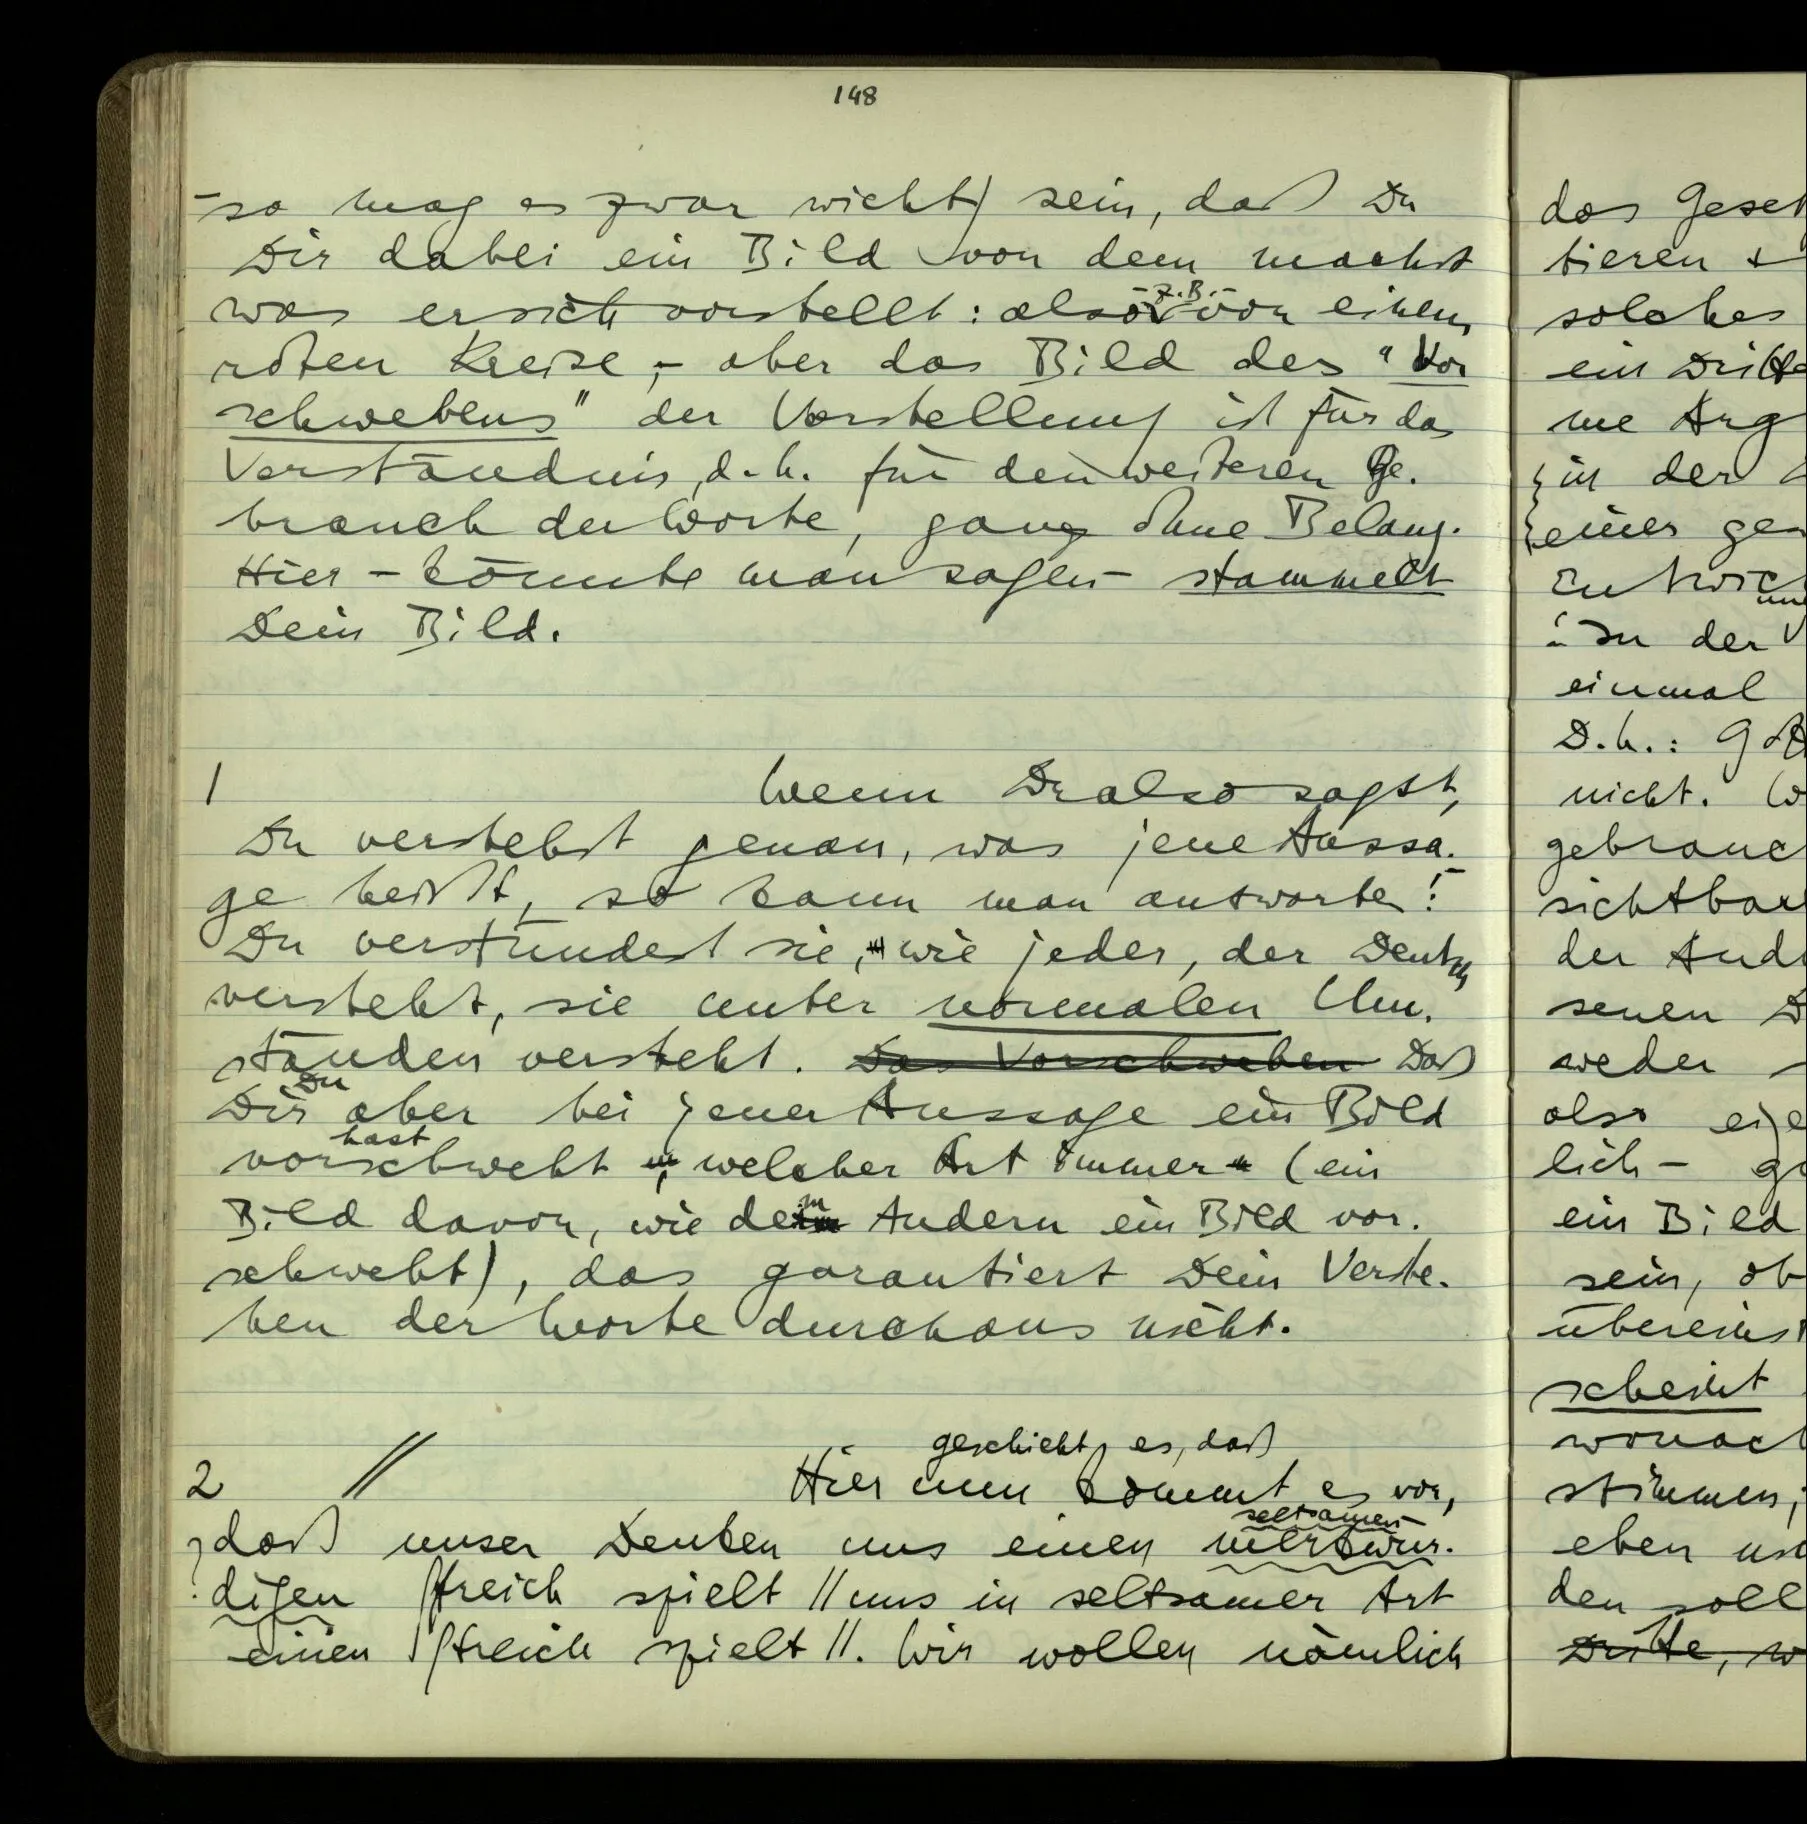 148
– so mag es zwar richtig sein, daß Du
Dir dabei ein Bild von dem machst
was er sich vorstellt: also – z.B. – von einem
roten Kreise, – aber das Bild des "Vor
schwebens" der Vorstellung ist für das
Verständnis, d.h. für den weiteren Ge-
brauch der Worte, ganz ohne Belang.
Hier – könnte man sagen – stammelt
Dein Bild.
1 Wenn Du also sagst,
Du verstehst genau, was jene Aussa-
ge heißt, so kann man antworten:
Du verstündest sie, wie jeder, der Deutsch
versteht, sie unter normalen Um-
ständen versteht. Das Vorschweben Daß
Du
Dir aber bei jener Aussage ein Bild
hast
vorschwebt, welcher Art immer (ein
Bild davon, wie dem Andern ein Bild vor-
schwebt), das garantiert Dein Verste-
hen der Worte durchaus nicht.
geschieht es, daß
2 // Hier nun kommt es vor,
seltsamen
daß unser Denken uns einen merkwür-
digen Streich spielt // uns in seltsamer Art
einen Streich spielt //. Wir wollen nämlich
das
tieren &
solches
ein
me
in der
einer
: In der
einmal
D.h.:
nicht.
der
senen
weder
also
lich –
ein Bild
sein, ob
scheint
stimmen,
eben
den soll
Dritte,